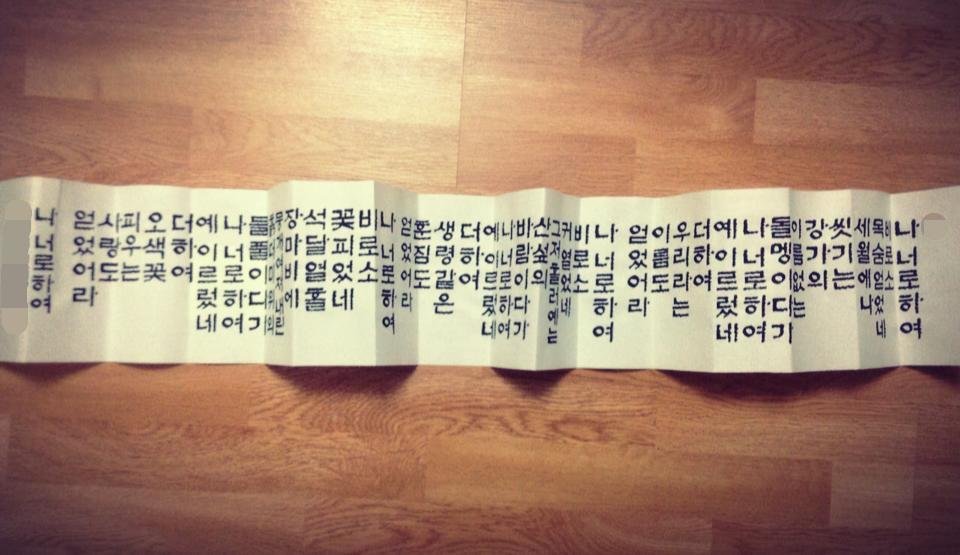 나 너로하여
비로소
목숨얻었네
세월에 나
씻기는
강가의
이름없는
돌멩이다가
나 너로하여
예 이르렀네
더하여
우리라는
이름도
얻었어라
나 너로하여
비로소
귀 열었네
그저 흘러예는
산섶의
바람이다가
나 너로하여
예 이르렀네
더하여
생령같은
얻었어라
나 너로하여
비로소
꽃피었네
석달열흘
장마비에
들풀이다가
나 너로하여
예 이르렀네
더하여
오색꽃
피우는
사랑도
얻었어라
나 너로하여